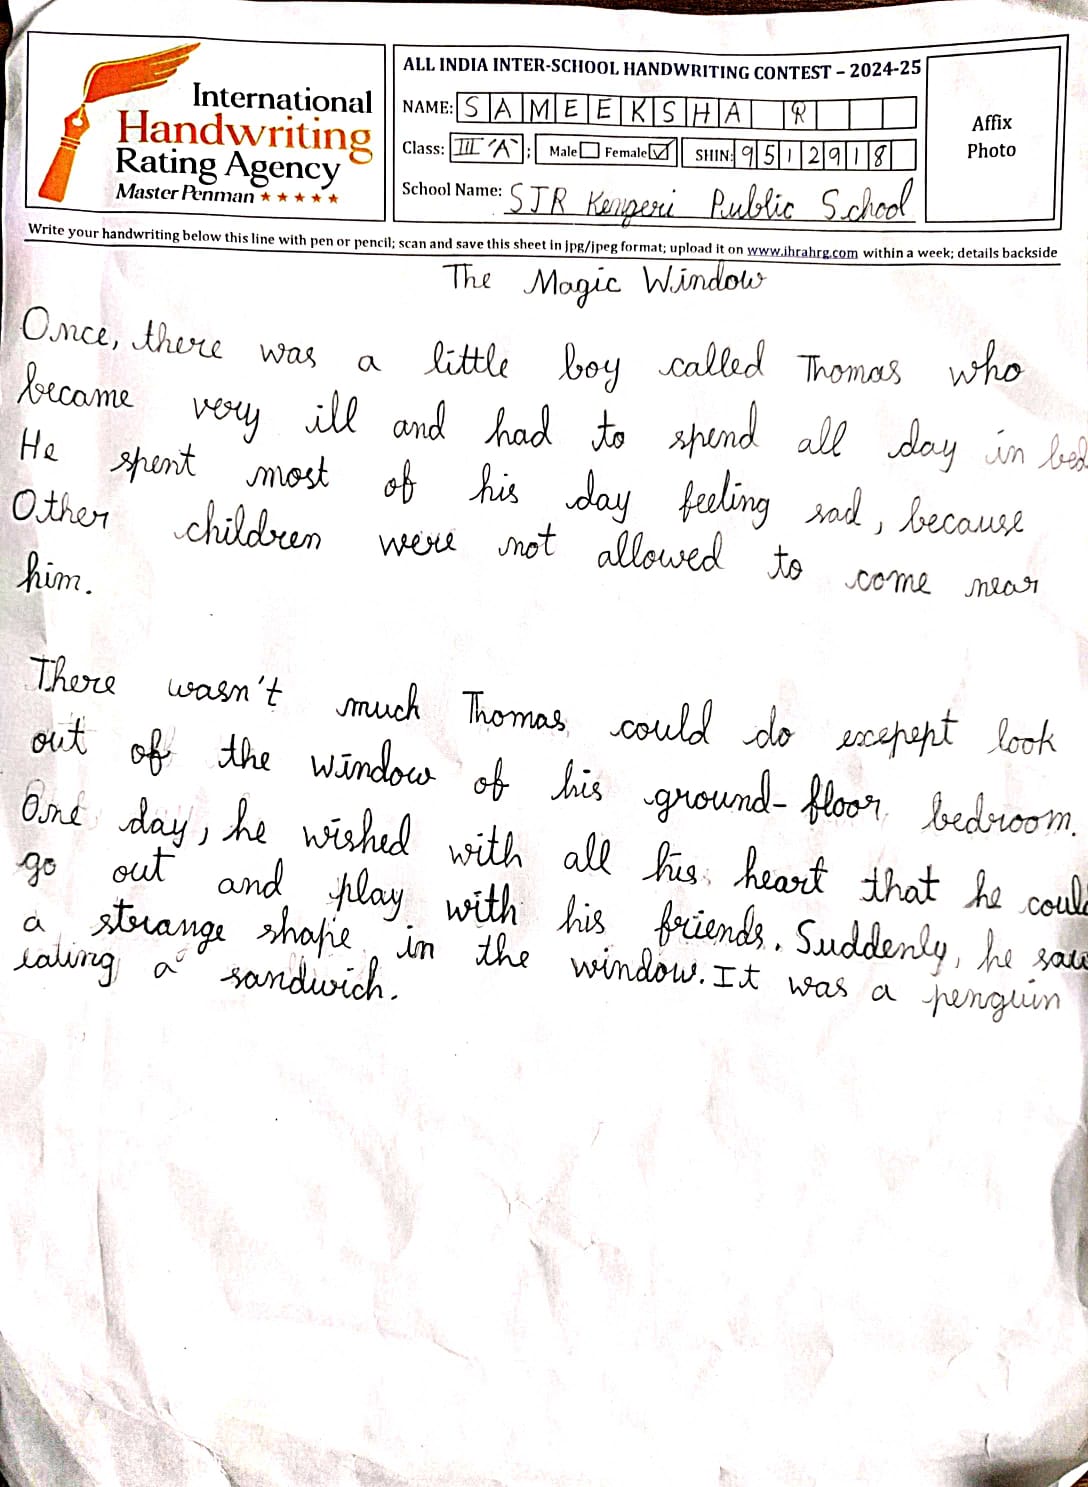 International
Handwriting
Rating Agency
Master Penman ★★★★★
ALL INDIA INTER-SCHOOL HANDWRITING CONTEST – 2024-25
NAME: SAMEEKSHA R
Class: III 'A' ; Male Female ✓ SHIN: 9512918
School Name: SJR Kengeri Public School
Affix
Photo
Write your handwriting below this line with pen or pencil; scan and save this sheet in jpg/jpeg format; upload it on www.ihrahrg.com within a week; details backside
The Magic Window
Once, there was a little boy called Thomas who
became very ill and had to spend all day in bed
He spent most of his day feeling sad, because
Other children were not allowed to come near
him.
There wasn't much Thomas could do exepept look
out of the window of his ground-floor bedroom.
One day, he wished with all his heart that he could
go out and play with his friends. Suddenly, he saw
a strange shape in the window. It was a penguin
eating a sandwich.